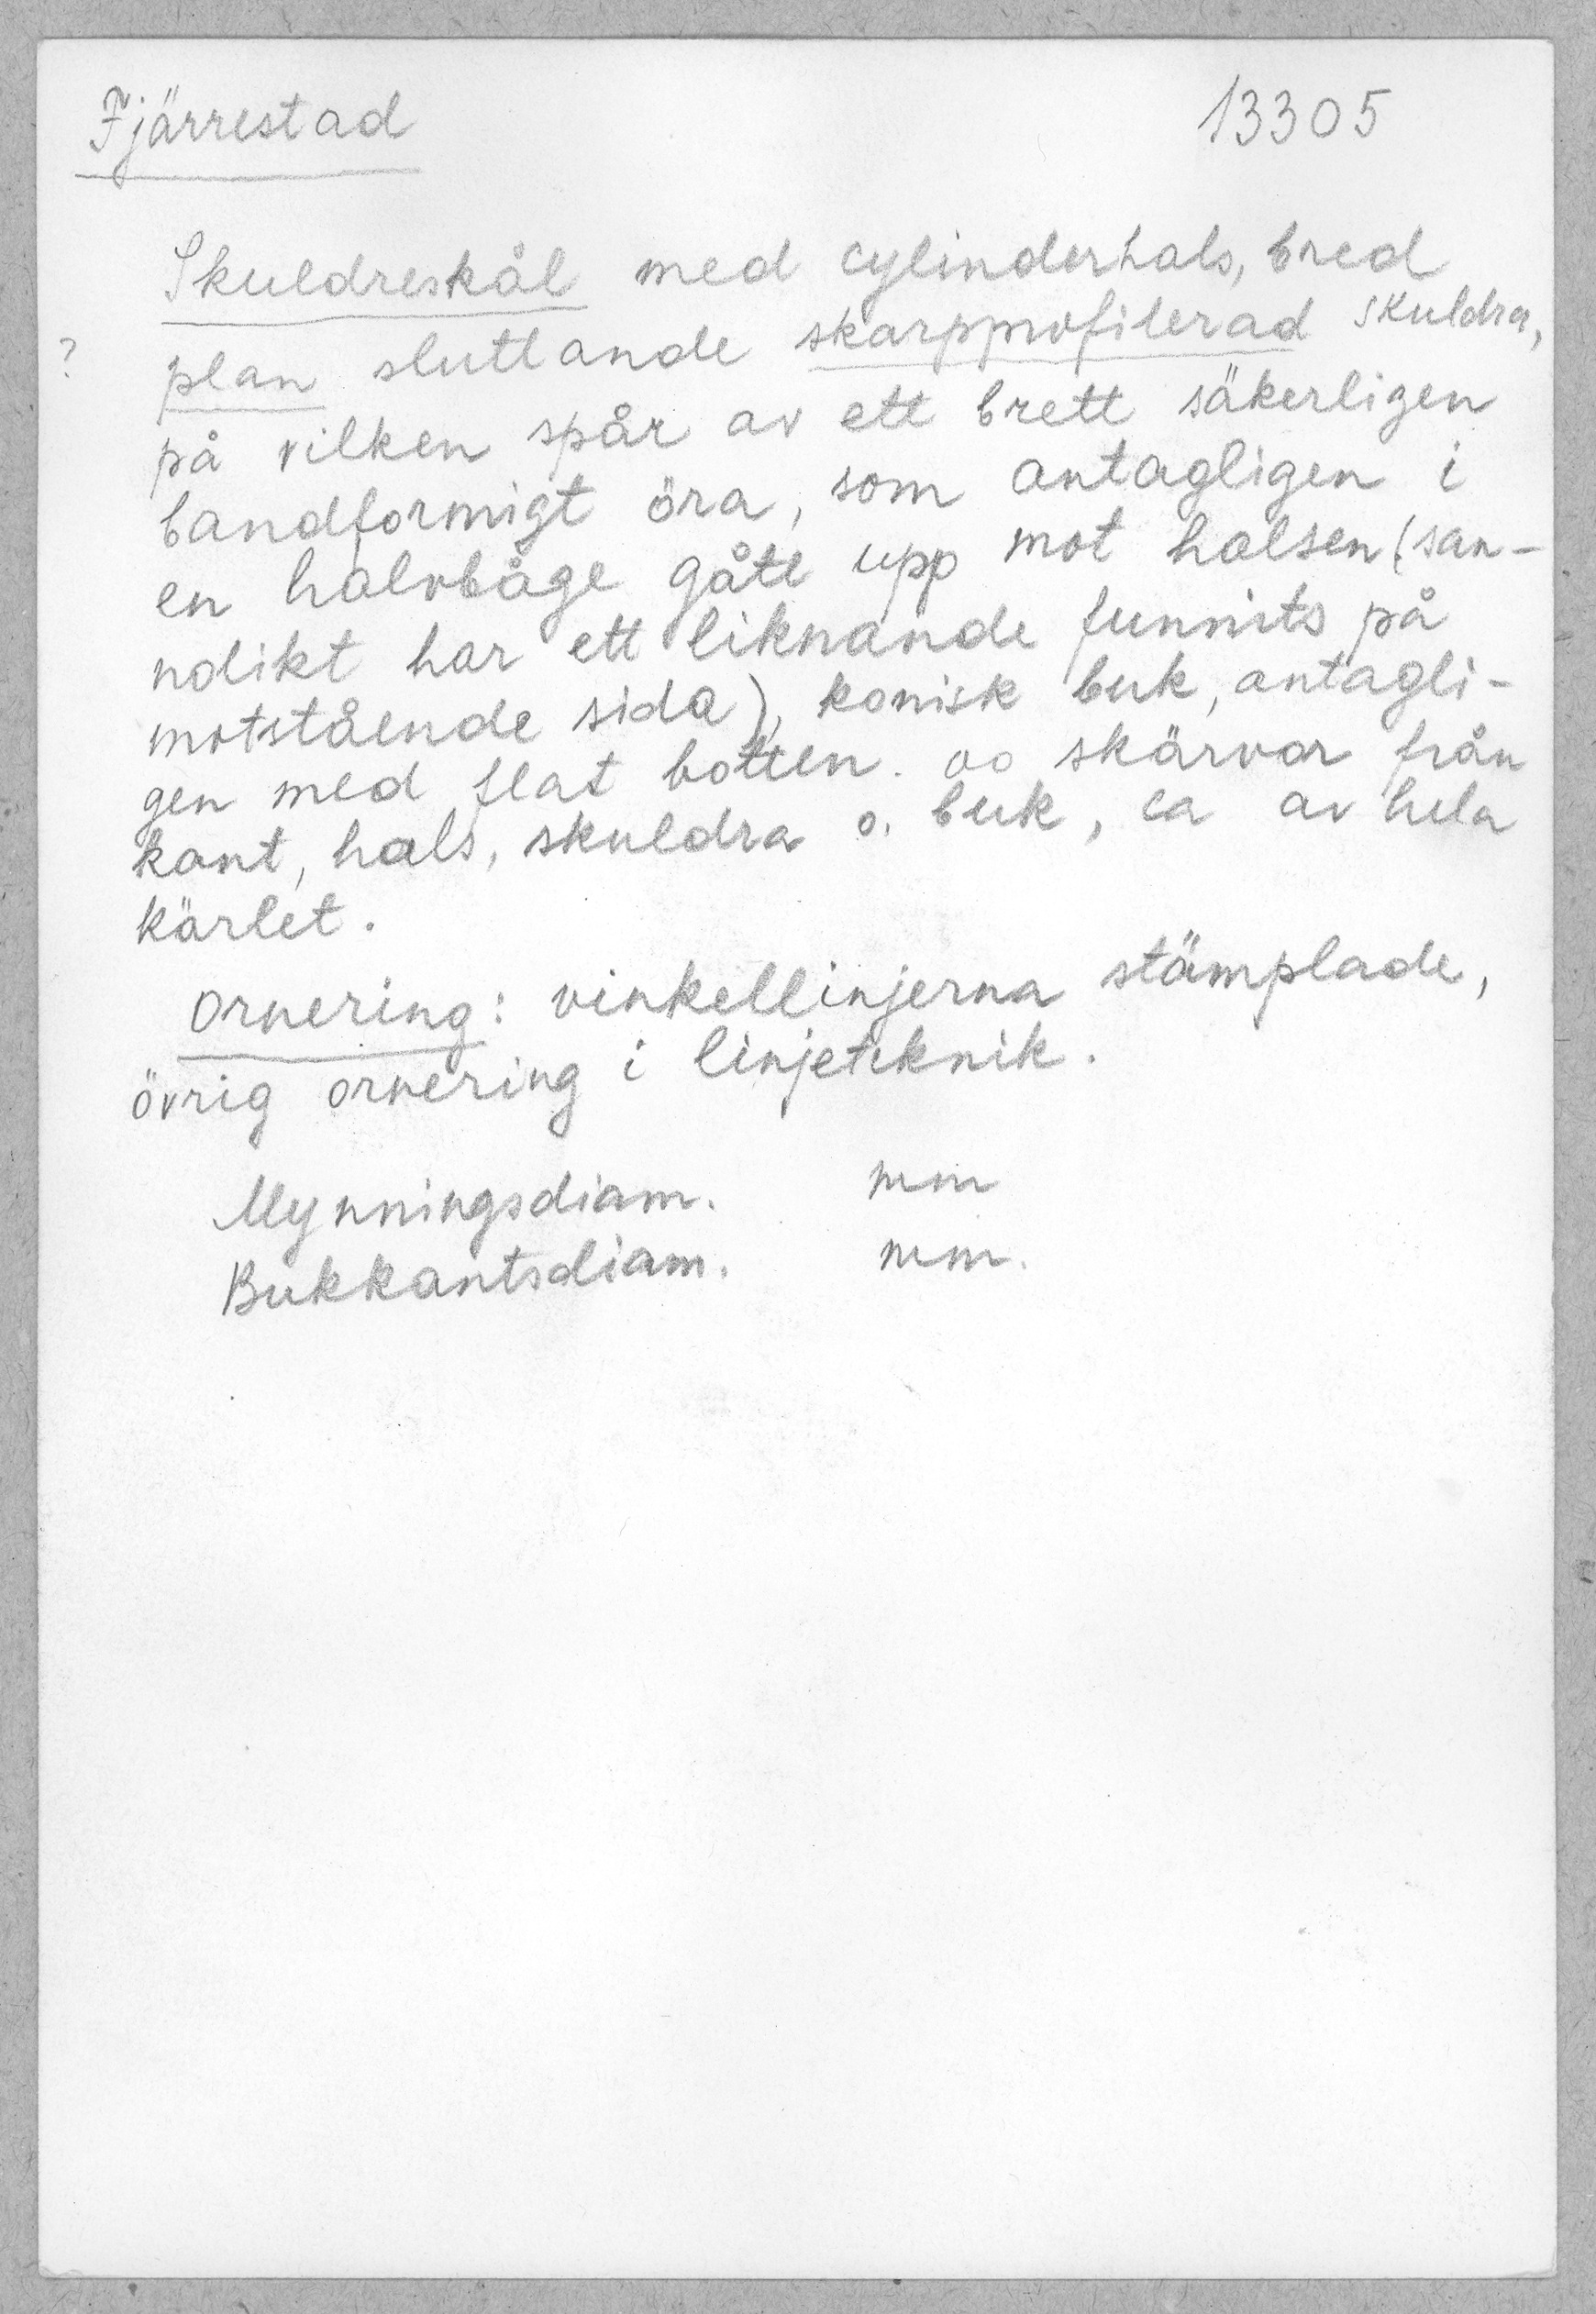 Fjärrestad 13305
Skuldreskål med cylinderhals, bred
? plan sluttande skarpprofilerad skuldra,
på vilken spår av ett brett säkerligen
bandformigt öra, som antagligen i
en halvbåge gått upp mot halsen (san-
nolikt har ett liknande funnits på
motstående sida), konisk buk, antagli-
gen med flat botten. oo skärvor från
kant, hals, skuldra o. buk, ca av hela
kärlet.
Ornering: vinkellinjerna stämplade,
övrig ornering i linjeteknik.
Mynningsdiam. mm
Bukkantsdiam. mm.